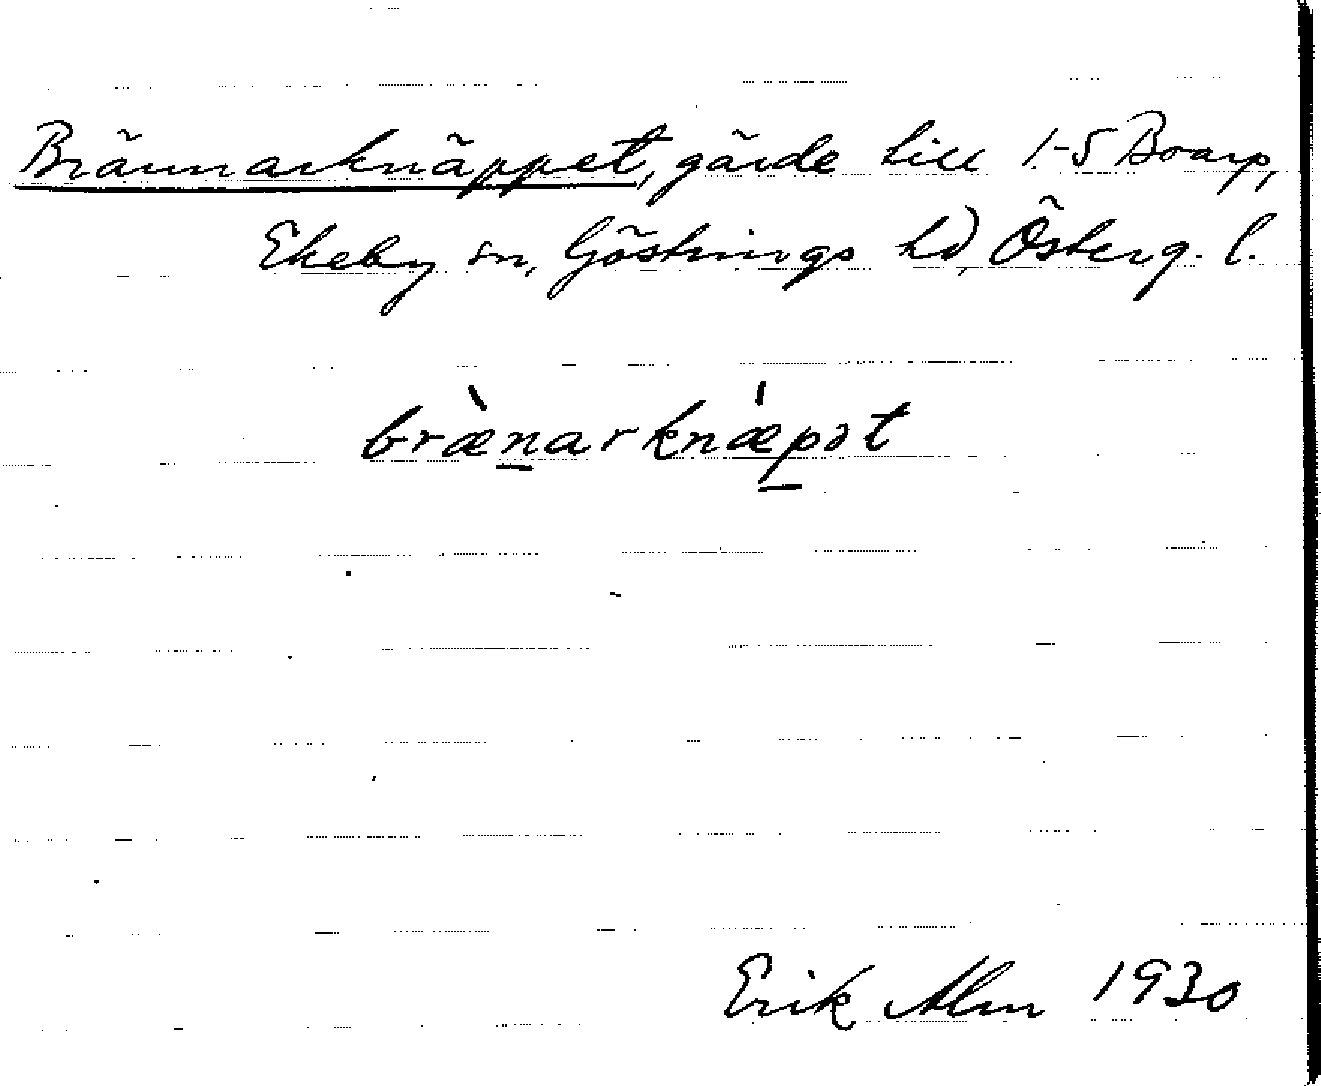 Brännarknäppet, gärde till 1-5 Boarp,
Ekeby sn, Göstrings hd, Österg. l.
bræ̀narknǽpət
Erik Alm 1930